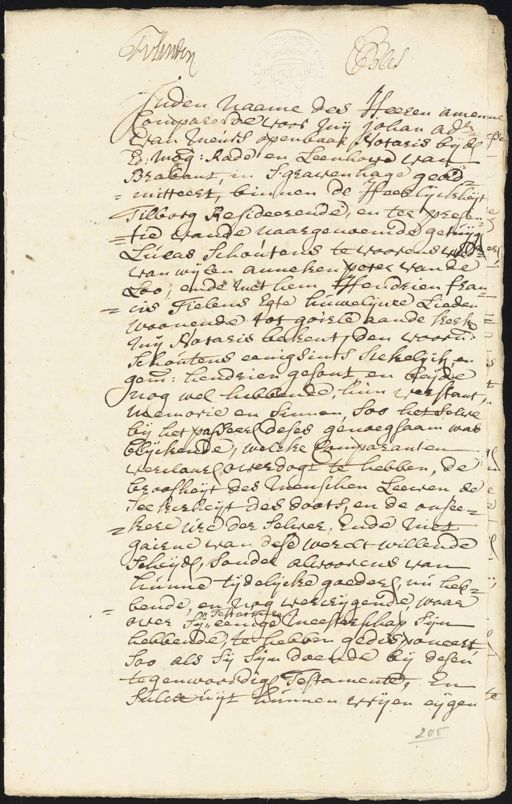 Inden Naame des Heeren amen
Compareerde voor mij Johan
van openbaar Notaris bij d
Ed: Mog: Rade en Leenhove van
Brabant, in 'sGravenhage gead
=mitteert, binnen de Heerlijckheijt
Tilborg Resideerende, en ter presen
=tie vande naargenoemde getuijg
Lucas Schoutens te voorens
van wijlen anneken peter vande
Loo, ende met hem Hendrien fran
=cis Tielens Egte huwelijcke Lieden
woonende tot goirle aande kerk
Mij Notaris bekent, den voorn:
Schoutens eenigsints sieckelijck, en
gem: hendrien gesont, en beijde
nog wel hebbende, hun verstant,
memorie en sinnen, soo het selve
bij het passeer deses genoegsaam was
blijckende, welcke Comparanten
verclaar overdogt te hebben, de
broosheijt des menschen Leeven de
seekerheijt des doots, en de onsee
=kere ure der selver, Ende niet
gairne van dese werelt willende
scheijd, sonder alvoorens van
hunne tijdelijcke goeder, nu heb
=bende, en nog vercrijgende, waar
over sij eenige meesterschap sijn
hebbende, te hebben gedisponeert
soo als sij sijn doende bij desen
tegenwoordig Testamente, En
sulcx uijt hunnen vrijen eijgen
205